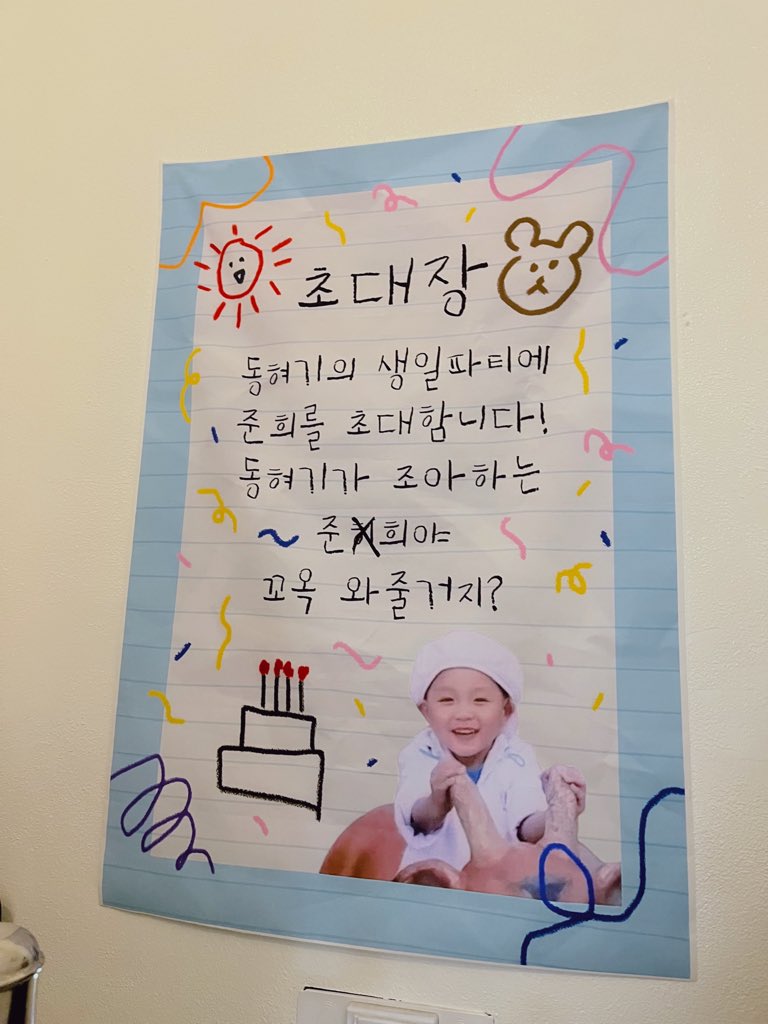 초대장
동혀기의 생일파티에
준희를 초대함니다!
동혀기가 조아하는
준희야
꼬옥 와줄거지?